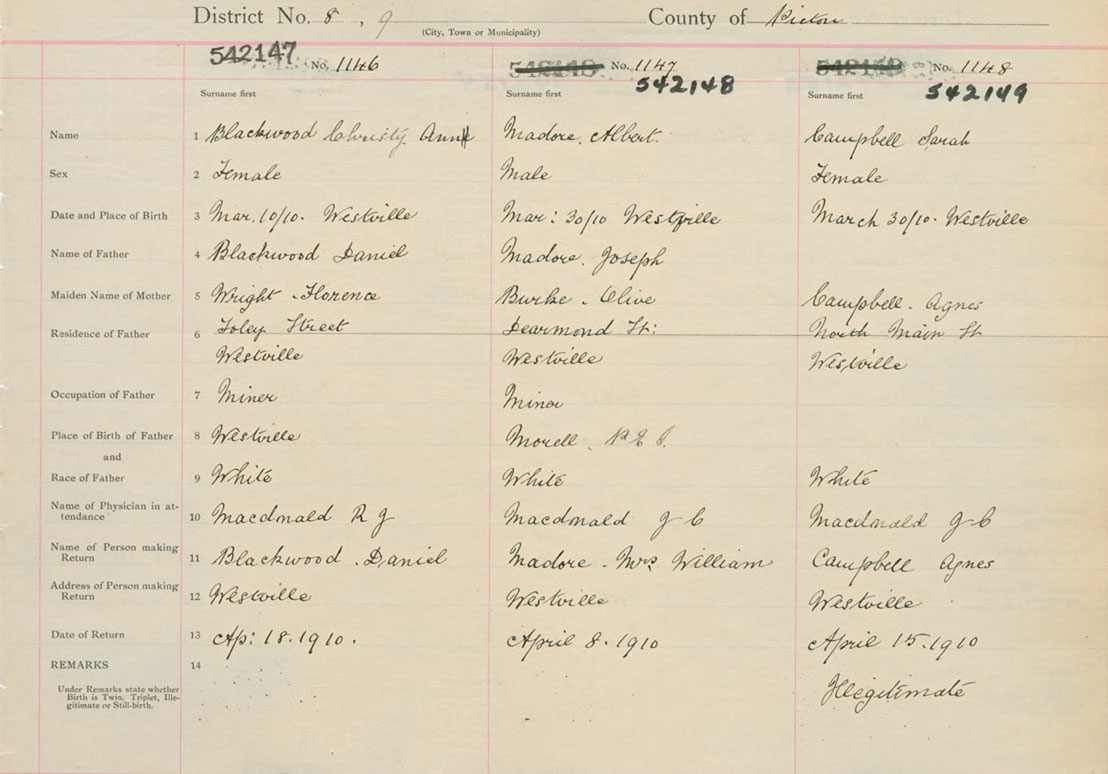 District No. 8, 9 County of Pictou
(City, Town or Municipality)
542147 No. 1146 No. 1147 No. 1148
542148 542149
Surname first Surname first Surname first
Name 1 Blackwood Christy Ann Madore. Albert. Campbell Sarah
Sex 2 Female Male Female
Date and Place of Birth 3 Mar. 10/10. Westville Mar: 30/10 Westville March 30/10. Westville
Name of Father 4 Blackwood Daniel Madore. Joseph
Maiden Name of Mother 5 Wright - Florence Burke - Olive Campbell - Agnes
Residence of Father 6 Foley Street Dearmond St: North Main St
Westville Westville Westville
Occupation of Father 7 Miner Miner
Place of Birth of Father 8 Westville Morell P E I.
and
Race of Father 9 White White White
Name of Physician in at-
tendance 10 Macdonald R J Macdonald J C Macdonald J C
Name of Person making
Return 11 Blackwood . Daniel Madore - Mrs William Campbell Agnes
Address of Person making
Return 12 Westville Westville Westville
Date of Return 13 Ap: 18. 1910. April 8. 1910 April 15. 1910
REMARKS 14
Under Remarks state whether
Birth is Twin, Triplet, Ille-
gitimate or Still-birth.
Illegitimate